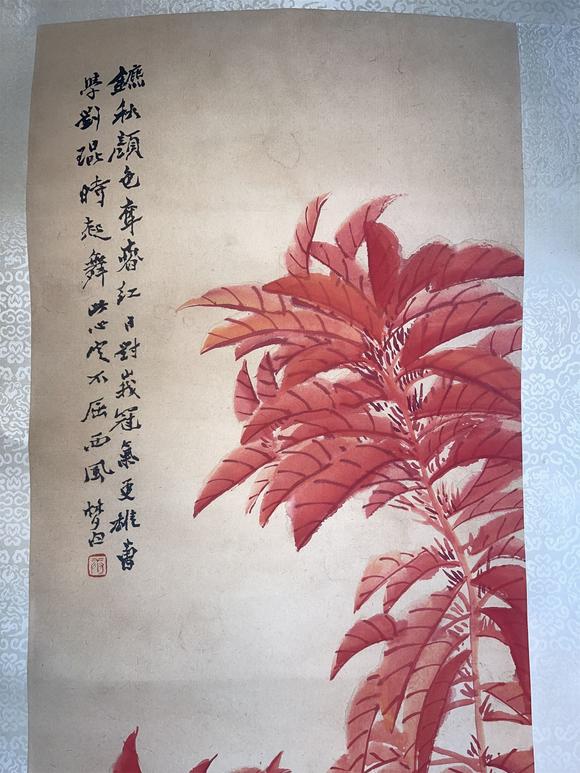 秋顏色奪春紅日對峩冠氣更雄曾
學劉琨時起舞此心定不屈西風 夢白